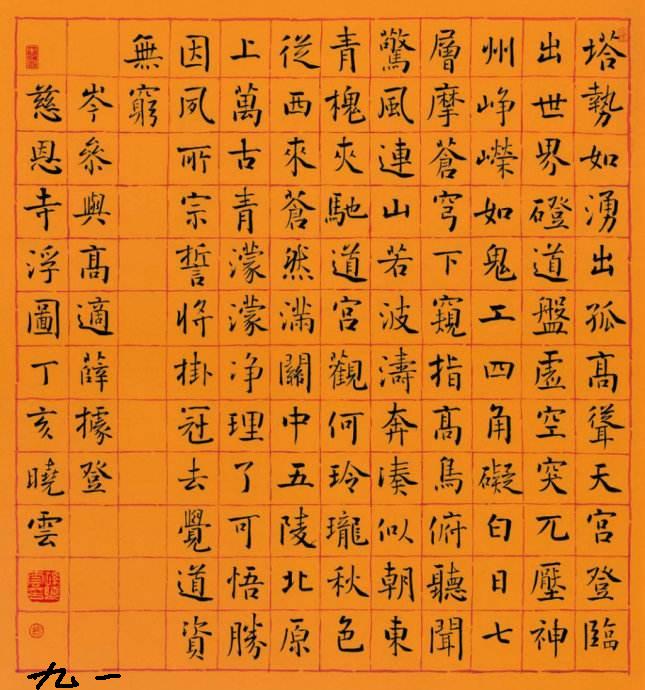 塔勢如湧出孤高聳天宮登臨
出世界磴道盤虛空突兀壓神
州崢嶸如鬼工四角礙白日七
層摩蒼穹下窺指高鳥俯聽聞
驚風連山若波濤奔湊似朝東
青槐夾馳道宮觀何玲瓏秋色
從西來蒼然滿關中五陵北原
上萬古青濛濛净理了可悟勝
因夙所宗誓將掛冠去覺道資
無窮
岑參與高適薛據登
慈恩寺浮圖丁亥曉雲
九一